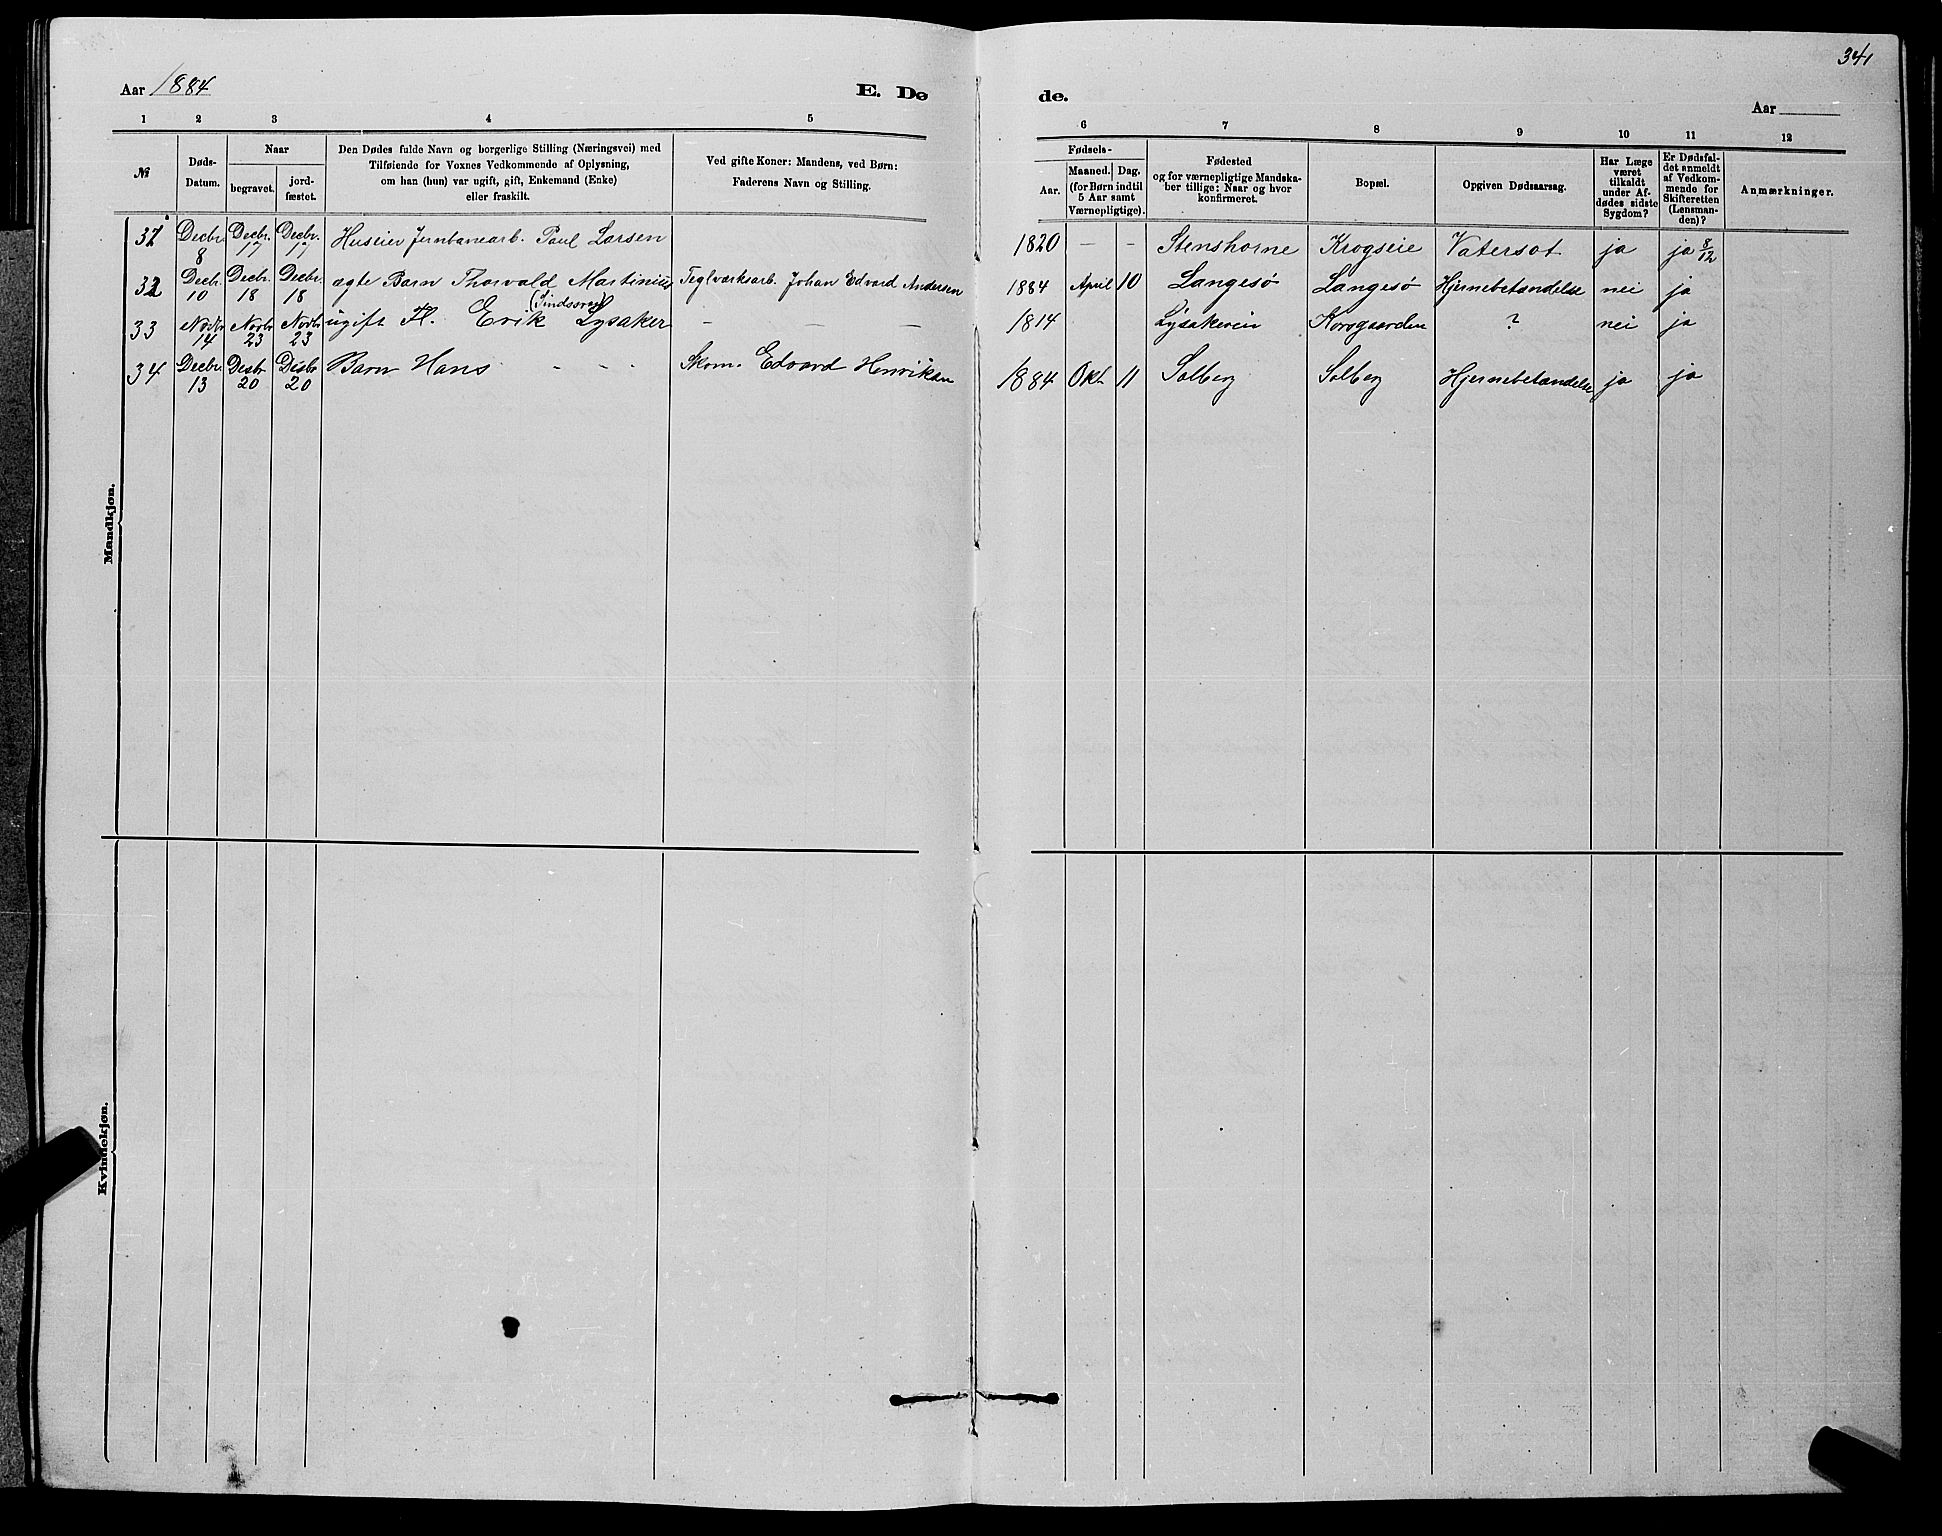 341
Aar 1884
E. Dø
de.
Aar
1 2 3 4 5
6 7 8 9 10 11 12
№
Døds-
Datum.
Naar
begravet.
jord-
fæstet.
Den Dødes fulde Navn og borgerlige Stilling (Næringsvei) med
Tilføiende for Voxnes Vedkommende af Oplysning,
om han (hun) var ugift, gift, Enkemand (Enke)
eller fraskilt.
Ved gifte Koner: Mandens, ved Børn:
Faderens Navn og Stilling.
Fødsels-
Aar.
Maaned. Dag.
(for Børn indtil
5 Aar samt
Værnepligtige).
Fødested
og for værnepligtige Mandska-
ber tillige: Naar og hvor
konfirmeret.
Bopæl.
Opgiven Dødsaarsag.
Har Læge
været
tilkaldt
under Af-
dødes sidste
Sygdom?
Er Dødsfal-
det anmeldt
af Vedkom-
mende for
Skifteretten
(Lensman-
den)?
Anmærkninger.
Mandkjøn.
31 Decbr. 8 Decbr. 17 Decbr. 17 Huseier Jernbanearb. Paul Larsen 1820 — — Stenshorne Krogseie Vatersot ja ja 8/12
32 Decbr. 10 Decbr. 18 Decbr. 18 ægte Barn Thorvald Martinius Teglværksarb. Johan Edvard Andersen 1884 April 10 Langesø Langesø Hjernebetændelse nei ja
33 Novbr. 14 Novbr. 23 Novbr. 23 ugift Fl. Erik (Sindssvag) Lysaker — — — 1814 Lysakereie Korsgaarden ? nei ja
34 Decbr. 13 Desbr. 20 Desbr. 20 Barn Hans - - - Skom. Edvard Henriksen 1884 Okt. 11 Solberg Solberg Hjernebetændelse ja ja
Kvindekjøn.